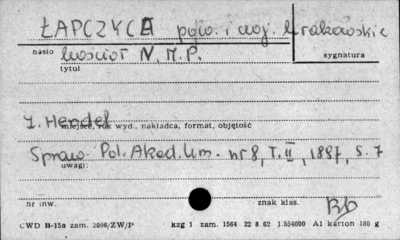 ŁAPCZYCA pow. i woj. krakowskie
hasło kościół N.M.P. sygnatura
tytuł
Z. Hendel
miejsce, rok wyd., nakładca, format, objętość
Spraw. Pol. Akad. Um. nr 8, T. II, 1887, s. 7
uwagi:
nr inw. znak klas. Bb
CWD B-15a zam. 2006/ZW/P kzg 1 zam. 1564 22 8 62 1.554000 A1 karton 180 g